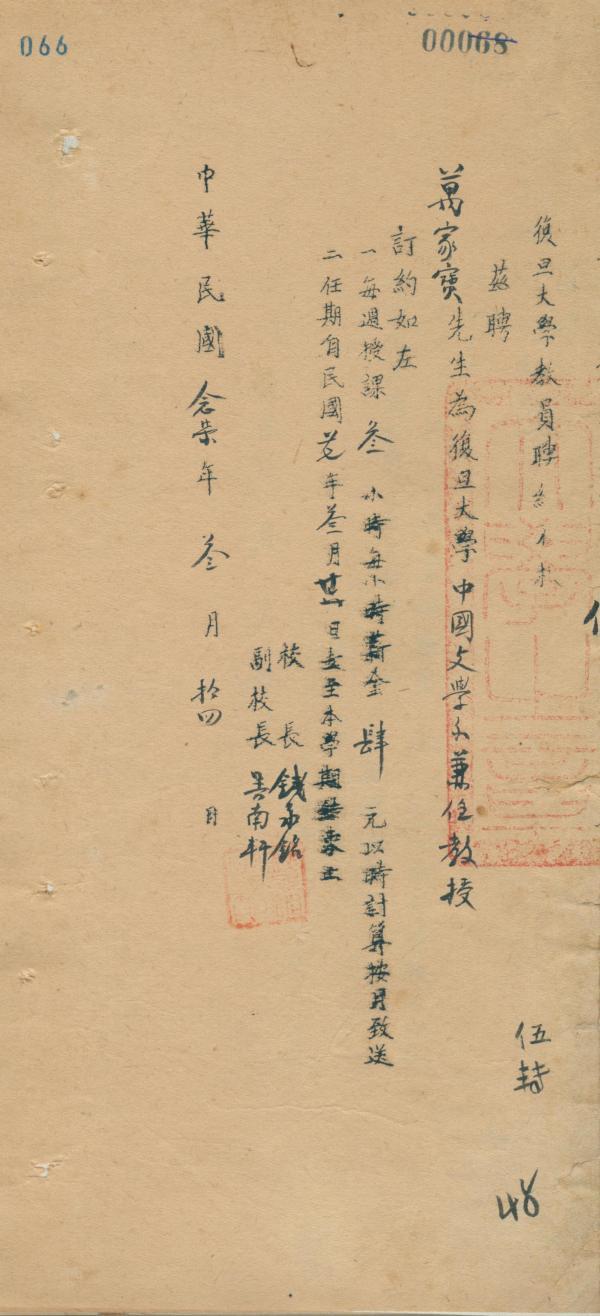 066
00068
復旦大學教員聘
茲聘
萬家寶先生為復旦大學中國文學系兼任教授
訂約如左
一 每週授課 叁 小時每小時薪金 肆 元以時計算按月致送
二 任期自民國 年叁月廿 日起至本學期結束止
校長 錢永銘
副校長 吳南軒
中華民國念柒年叁月拾四日
伍
48